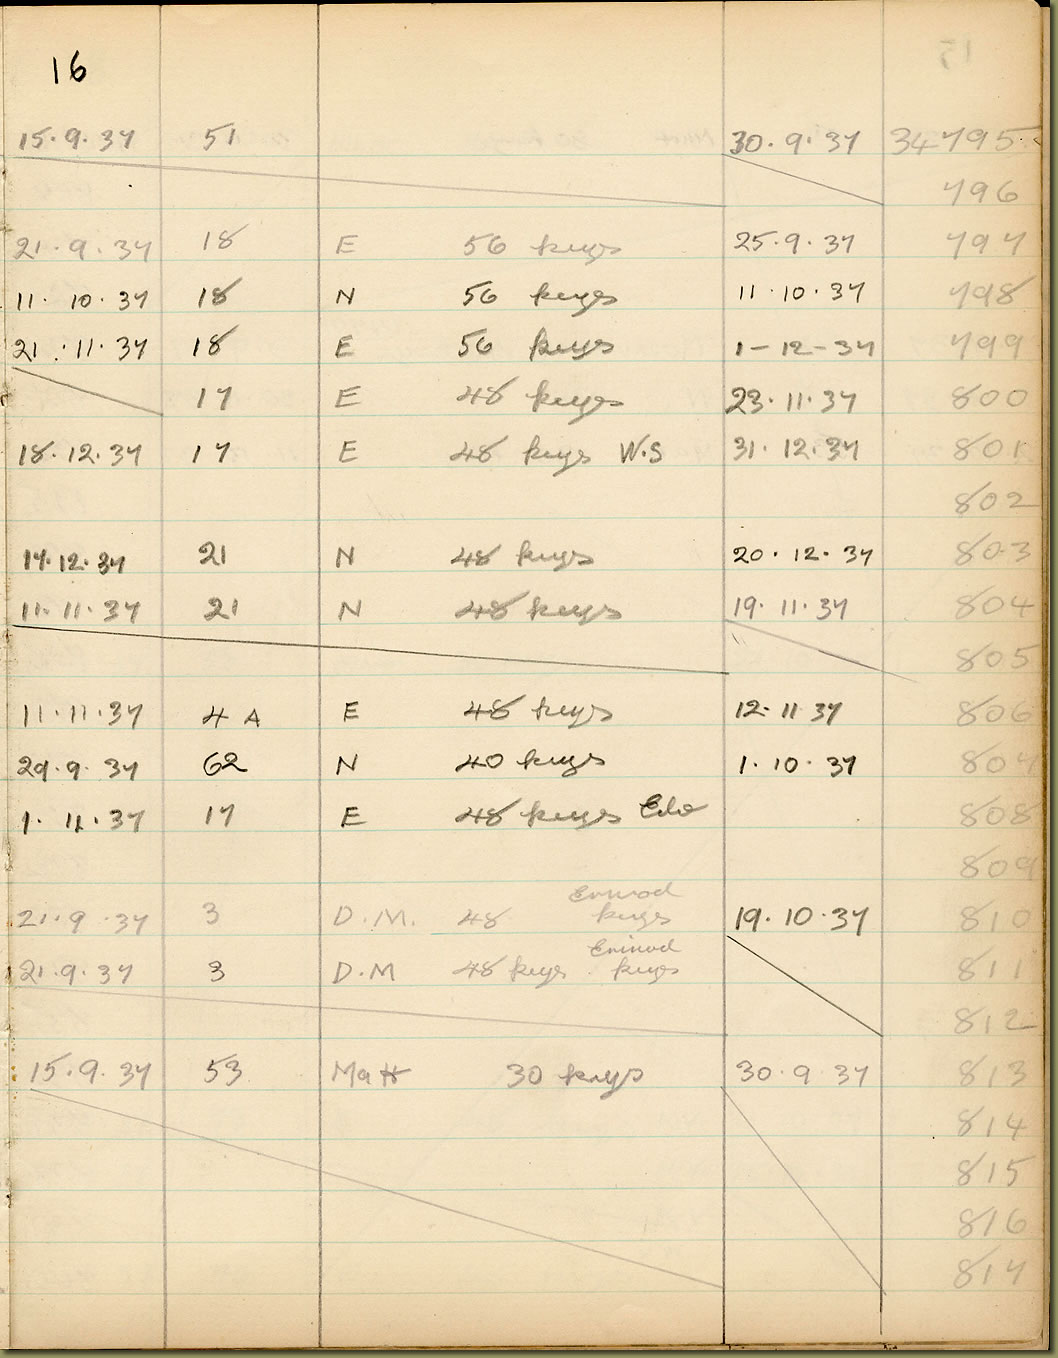 16
15.9.37 51 30.9.37 34795
796
21.9.37 18 E 56 keys 25.9.37 797
11.10.37 18 N 56 keys 11.10.37 798
21.11.37 18 E 56 keys 1-12-37 799
17 E 48 keys 23.11.37 800
18.12.37 17 E 48 keys W.S 31.12.37 801
802
17.12.37 21 N 48 keys 20.12.37 803
11.11.37 21 N 48 keys 19.11.37 804
805
11.11.37 4A E 48 keys 12.11 37 806
29.9.37 62 N 40 keys 1.10.37 807
1.11.37 17 E 48 keys 808
809
Erinod
21.9.37 3 D.M. 48 keys 19.10.37 810
Erinod
21.9.37 3 D.M 48 keys keys 811
812
15.9.37 53 Matt 30 keys 30.9.37 813
814
815
816
817